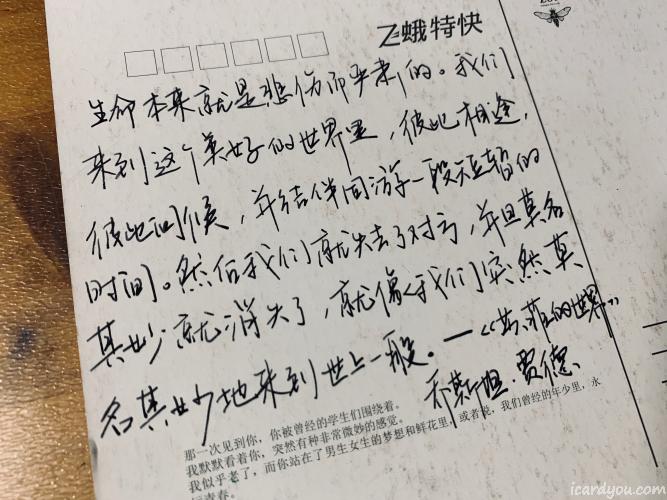 飞蛾特快
生命本来就是悲伤而严肃的。我们
来到这个美好的世界里，彼此相逢，
彼此问候，并结伴同游一段短暂的
时间。然后我们就失去了对方，并且莫名
其妙就消失了，就像我们突然莫
名其妙地来到世上一般。—《苏菲的世界》
乔斯坦·贾德
那一次见到你，你被曾经的学生们围绕着。
我默默看着你，突然有种非常微妙的感觉。
我似乎老了，而你站在了男生女生的梦想和鲜花里，或者说，我们曾经的年少里，永
青春。
icardyou.com